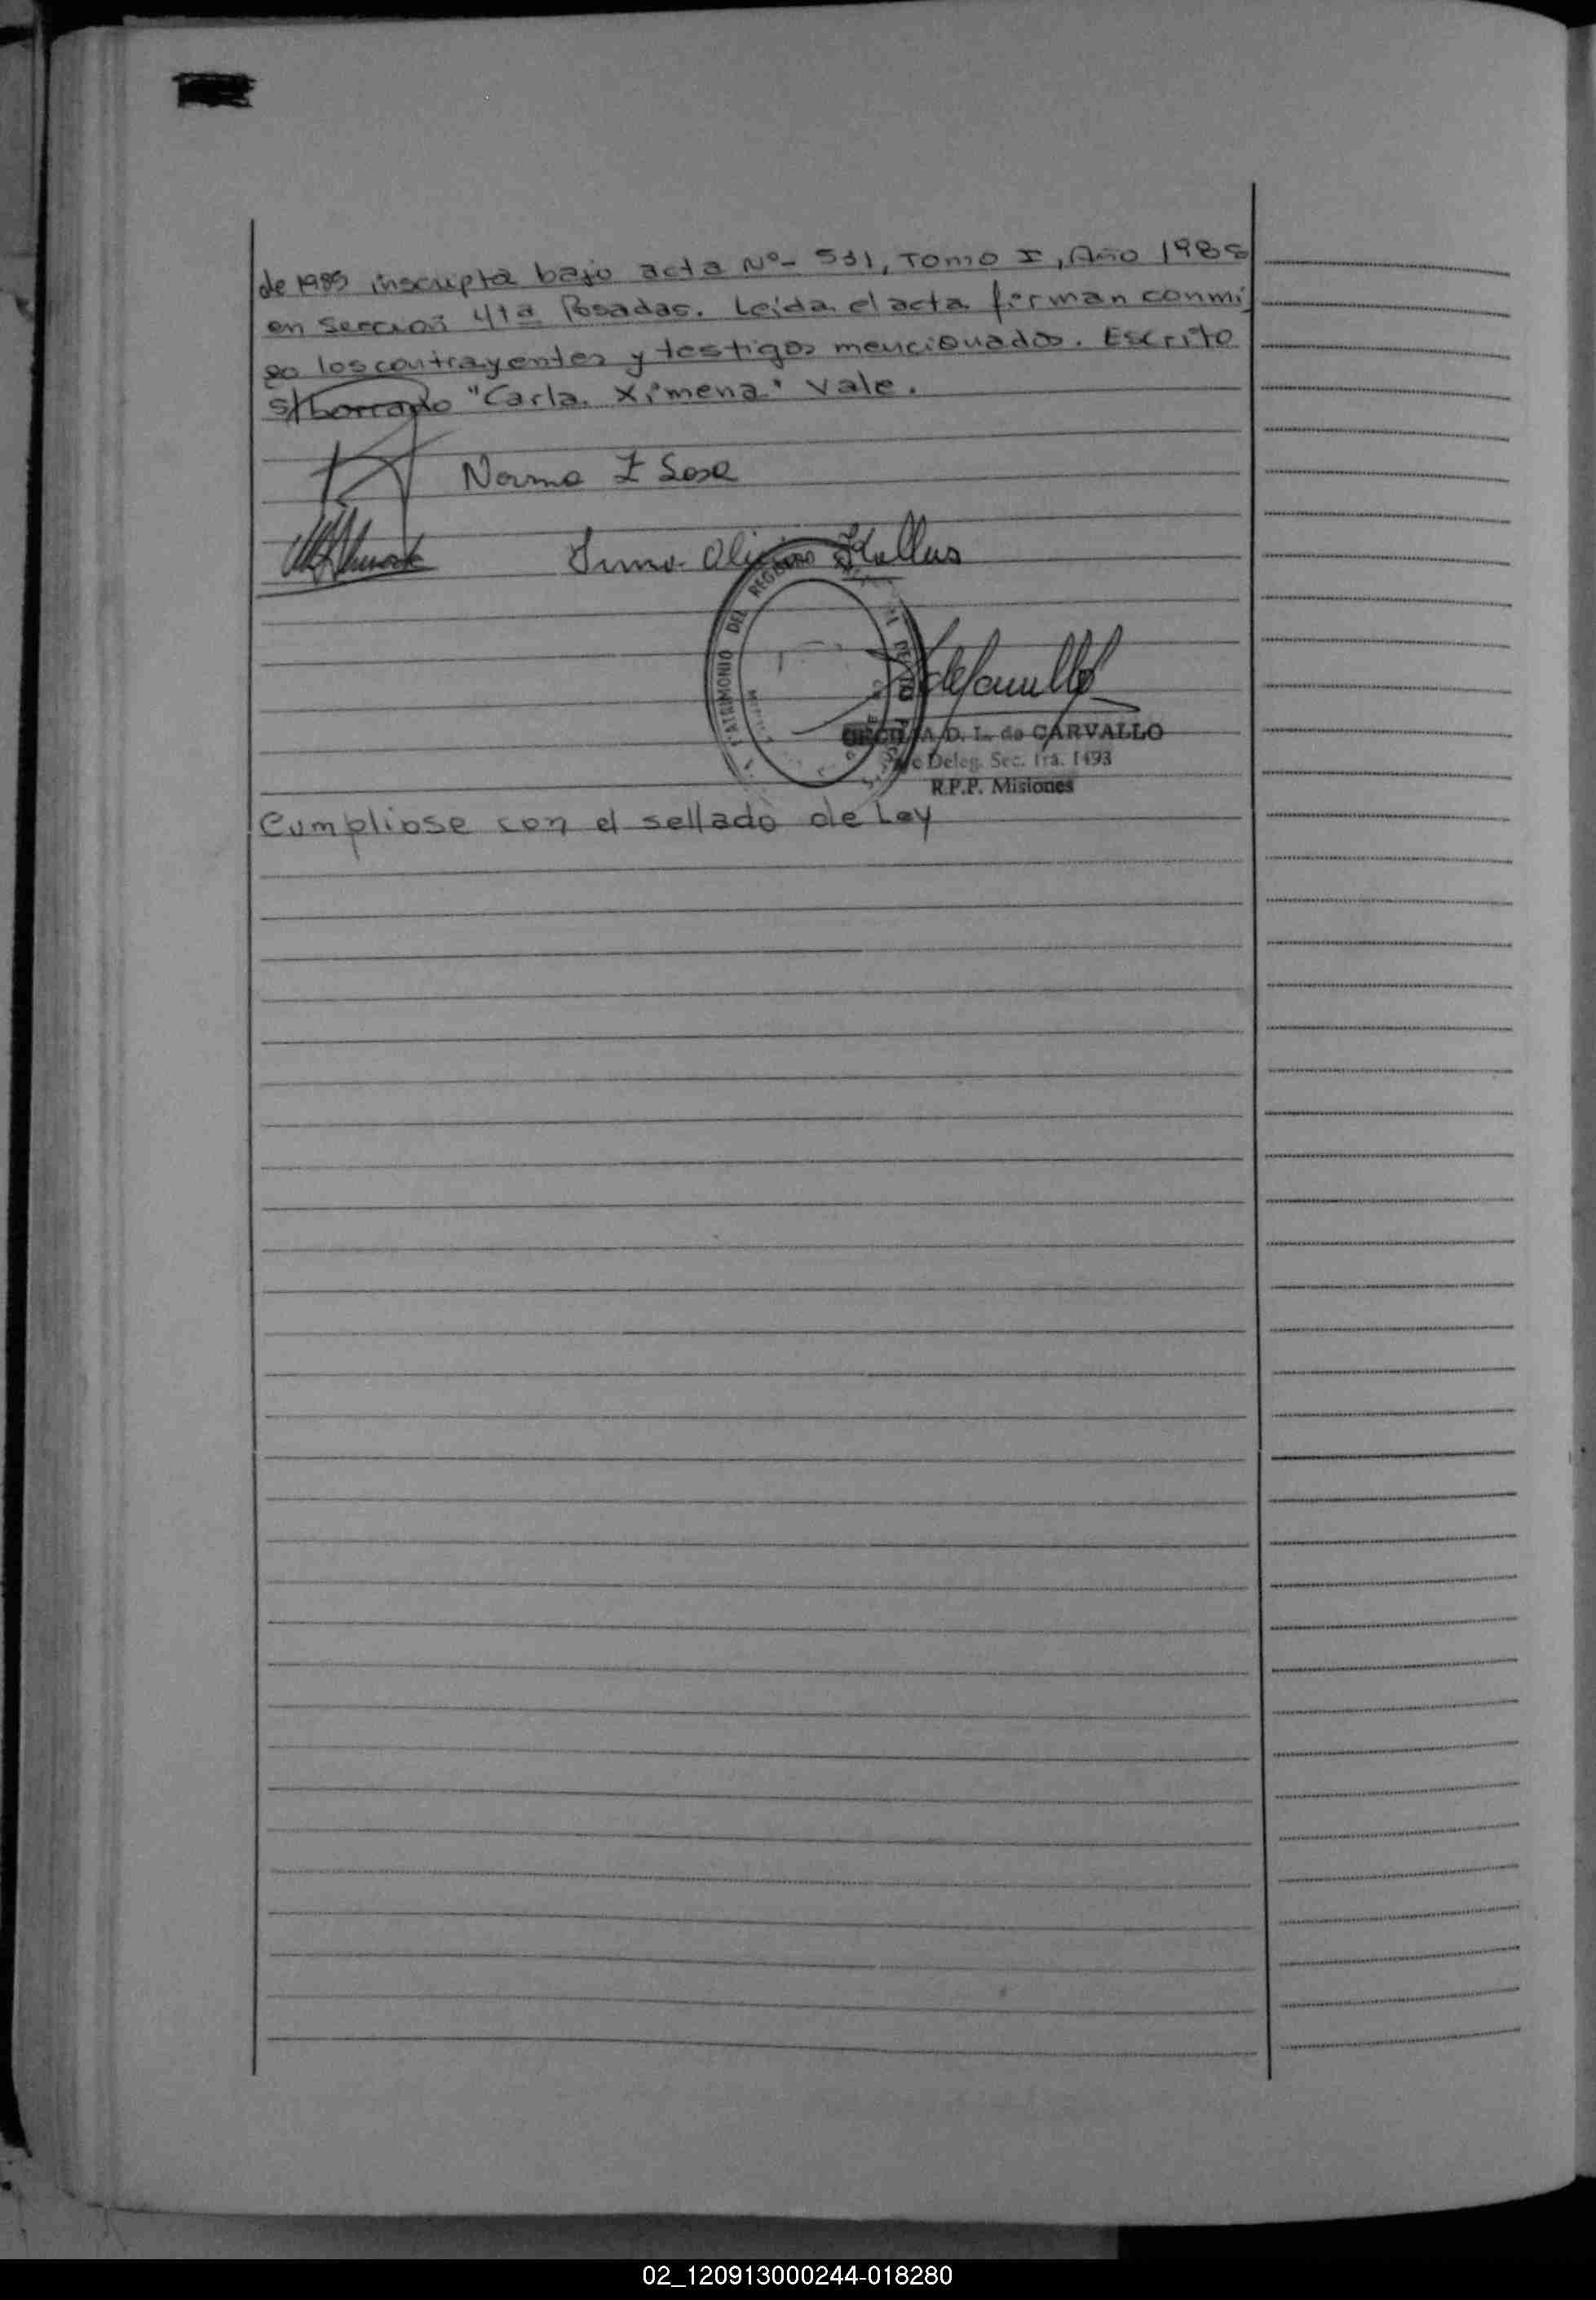 de 1985 inscripta bajo acta Nº- 531, Tomo I, Año 1985
en Sección 4ta Posadas. Leída el acta firman conmi
go los contrayentes y testigos mencionados. Escrito
s/borrado "Carla Ximena" vale.
Norma I Sosa
Irma Oli
PATRIMONIO DEL REGISTRO
A. D. L. de CARVALLO
Deleg. Sec. 1ra. 1493
R.P.P. Misiones
Cumpliose con el sellado de Ley
02_120913000244-018280